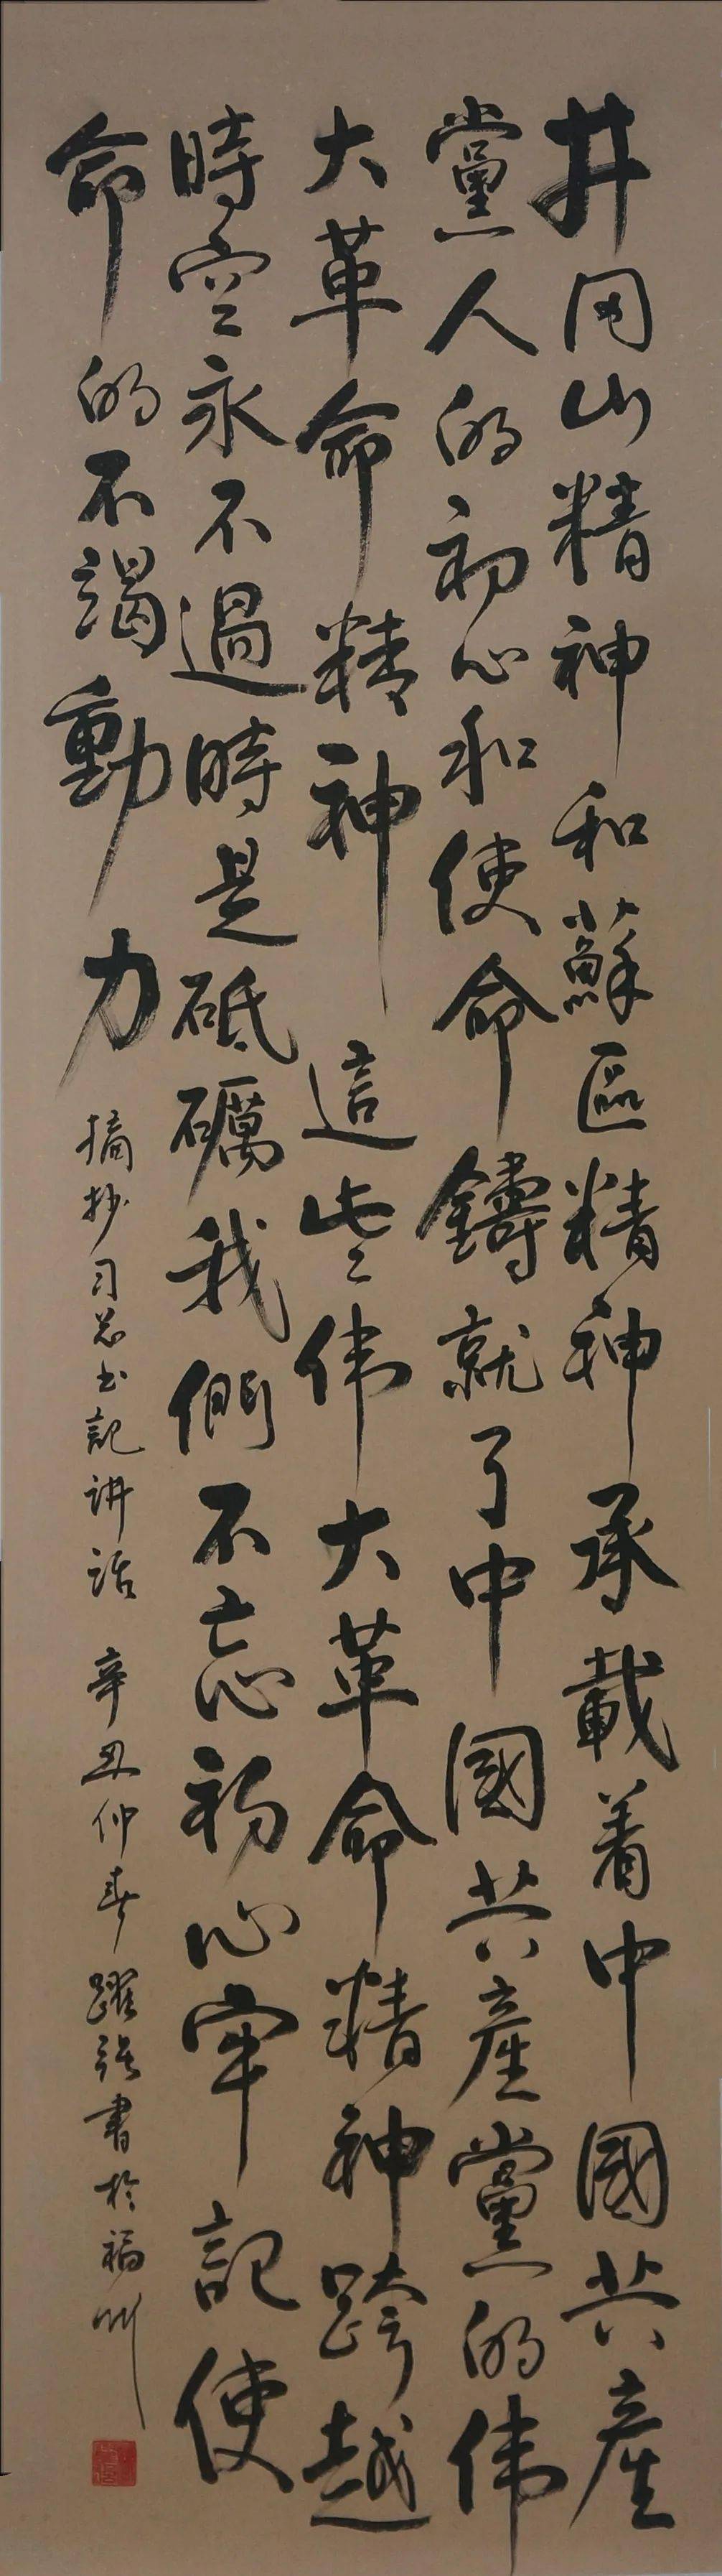 井冈山精神和蘇區精神承載着中國共産
黨人的初心和使命鑄就了中國共産黨的伟
大革命精神這些伟大革命精神跨越
時空永不過時是砥礪我們不忘初心牢記使
命的不竭動力
摘抄习总书記讲話 辛丑仲春躍强書於福州